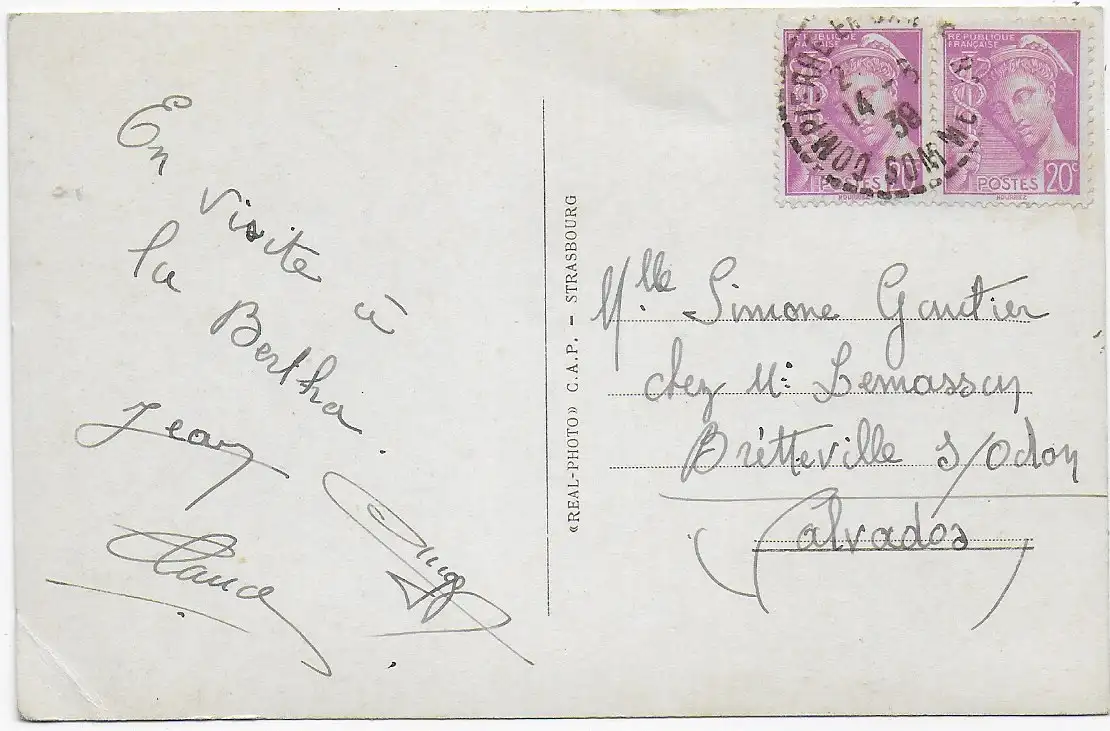 En
visite à
la Bertha.
Jean
Claude
«REAL-PHOTO» C.A.P. - STRASBOURG
RÉPUBLIQUE
FRANÇAISE
POSTES 20
HOURRIEZ
RÉPUBLIQUE
FRANÇAISE
POSTES 20c
HOURRIEZ
14
38
SOMME
Mlle Simone Gautier
chez Mr Lemasson
Brétteville s/Odon
Calvados